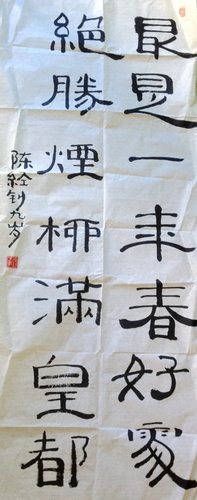 最是一年春好處
絕勝煙柳滿皇都
陈絟钊九岁